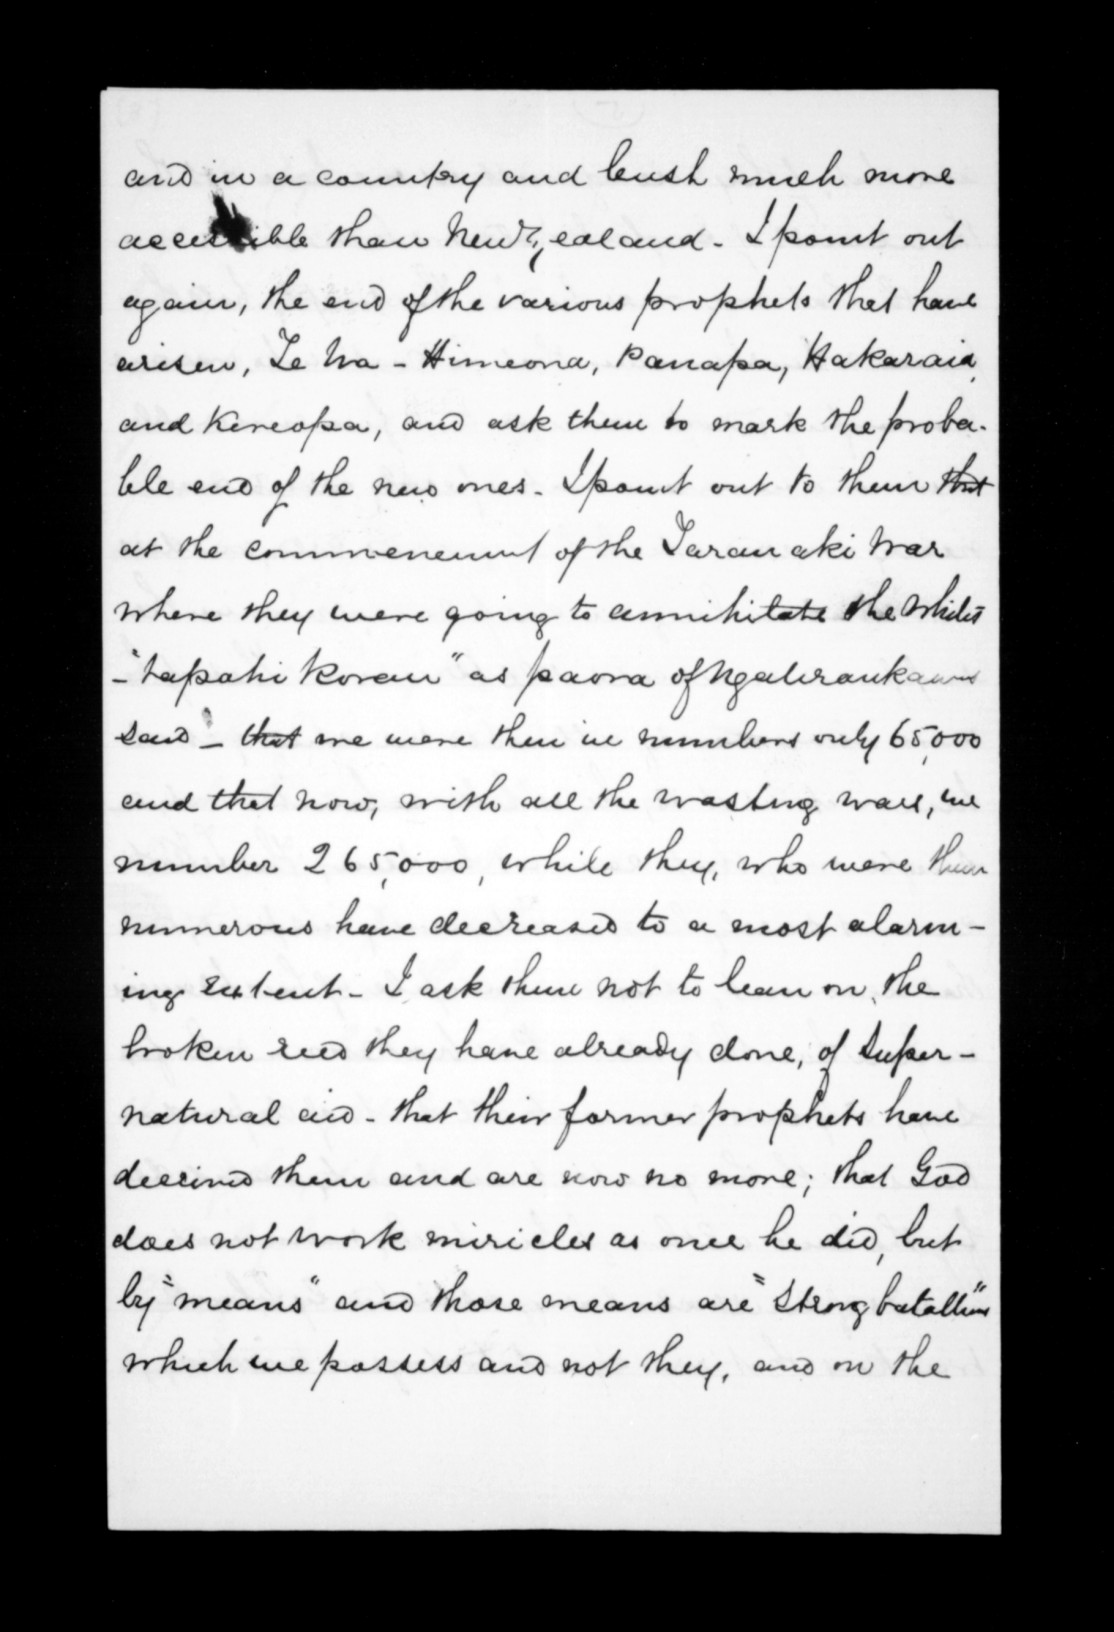 and in a country and bush much more
accessible than New Zealand - I point out
again, the end of the various prophets that have
arisen, Te Ua - Himeona, Panapa, Hakaraia
and Kereopa, and ask them to mark the proba-
ble end of the new ones - I point out to them that
at the commencement of the Taranaki War
where they were going to annihilate the Whites
- "tapahi
" as paora of
said - that we were then in numbers only 65,000
and that now, with all the wasting wars, we
number 265,000, while they, who were then
numerous have decreased to a most alarm-
ing extent - I ask them not to lean on, the
broken reed they have already done, of super-
natural aid - that their former prophets have
deceived them and are now no more; that God
does not work miricles as once he did, but
by "means" and those means are "Strong batallions"
which we possess and not they, and on the